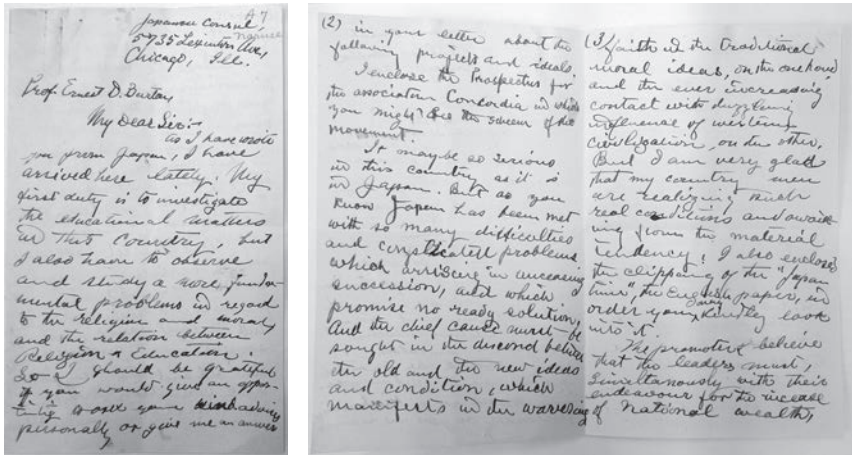 A7
Japanese Consul,
5735 Lexington Ave,
Chicago, Ill.
Prof. Ernest D. Burton,
My Dear Sir:-
As I have wrote
you from Japan, I have
arrived here lately. My
first duty is to investigate
the educational matters
in this country, but
I also have to observe
and study a more funda-
mental problems in regard
to the religion and morals
and the relation between
Religion & Education.
So I should be grateful
if you would give an oppor-
tunity to ask your kind advice
personally or give me an answer
(2) in your letter about the
following projects and ideals.
I enclose the Prospectus for
the association Concordia in which
you might see the scheme of the
movement.
It may be so serious
in this country as it is
in Japan. But as you
know Japan has been met
with so many difficulties
and complicated problems
which arising in unceasing
succession, and which
promise no ready solution,
And the chief cause must be
sought in the discord between
the old and the new ideas
and condition, which
manifests in the wavering
(3) faith in the traditional
moral ideas, on the one hand,
and the ever increasing
contact with dazzling
influence of western
civilization, on the other.
But I am very glad
that my country men
are realizing such
real conditions and awak-
ing from the material
tendency. I also enclosed
the clipping of the "Japan
time", the English paper, in
order you may kindly look
into it.
The promoters believe
that the leaders must,
simultanously with their
endeavour for the increase
of National wealth,